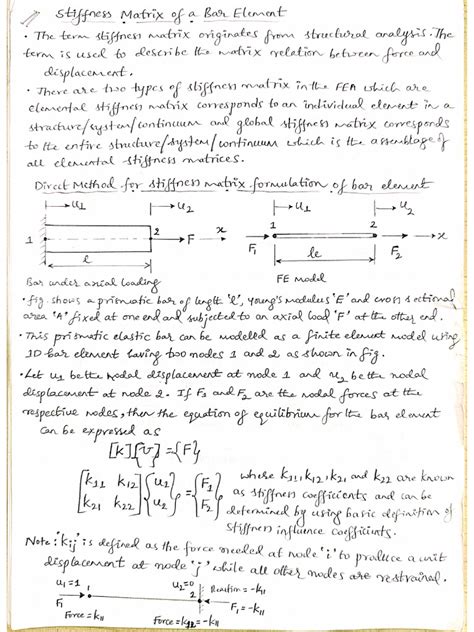 Stiffness Matrix of a Bar Element
• The term stiffness matrix originates from structural analysis. The
term is used to describe the matrix relation between force and
displacement.
• There are two types of stiffness matrix in the FEA which are
elemental stiffness matrix corresponds to an individual element in a
structure/system/continuum and global stiffness matrix corresponds
to the entire structure/system/continuum which is the assemblage of
all elemental stiffness matrices.
Direct Method for stiffness matrix formulation of bar element
u1 u2 u1 u2
1 2 F x F1 1 2 F2 x
l le
Bar under axial loading FE model
• fig. shows a prismatic bar of length 'l', young's modulus 'E' and cross sectional
area 'A' fixed at one end and subjected to an axial load 'F' at the other end.
• This prismatic elastic bar can be modelled as a finite element model using
1D bar element having two nodes 1 and 2 as shown in fig.
• Let u1 be the nodal displacement at node 1 and u2 be the nodal
displacement at node 2. If F1 and F2 are the nodal forces at the
respective nodes, then the equation of equilibrium for the bar element
can be expressed as
[K]{U}={F}
[k11 k12 k21 k22] {u1 u2} = {F1 F2} where k11, k12, k21 and k22 are known
as stiffness coefficients and can be
determined by using basic definition of
stiffness influence coefficients.
Note: 'kij' is defined as the force needed at node 'i' to produce a unit
displacement at node 'j' while all other nodes are restrained.
u1=1 1 u2=0 2 Reaction = -k11
F1 F1 = -k11
Force = k11